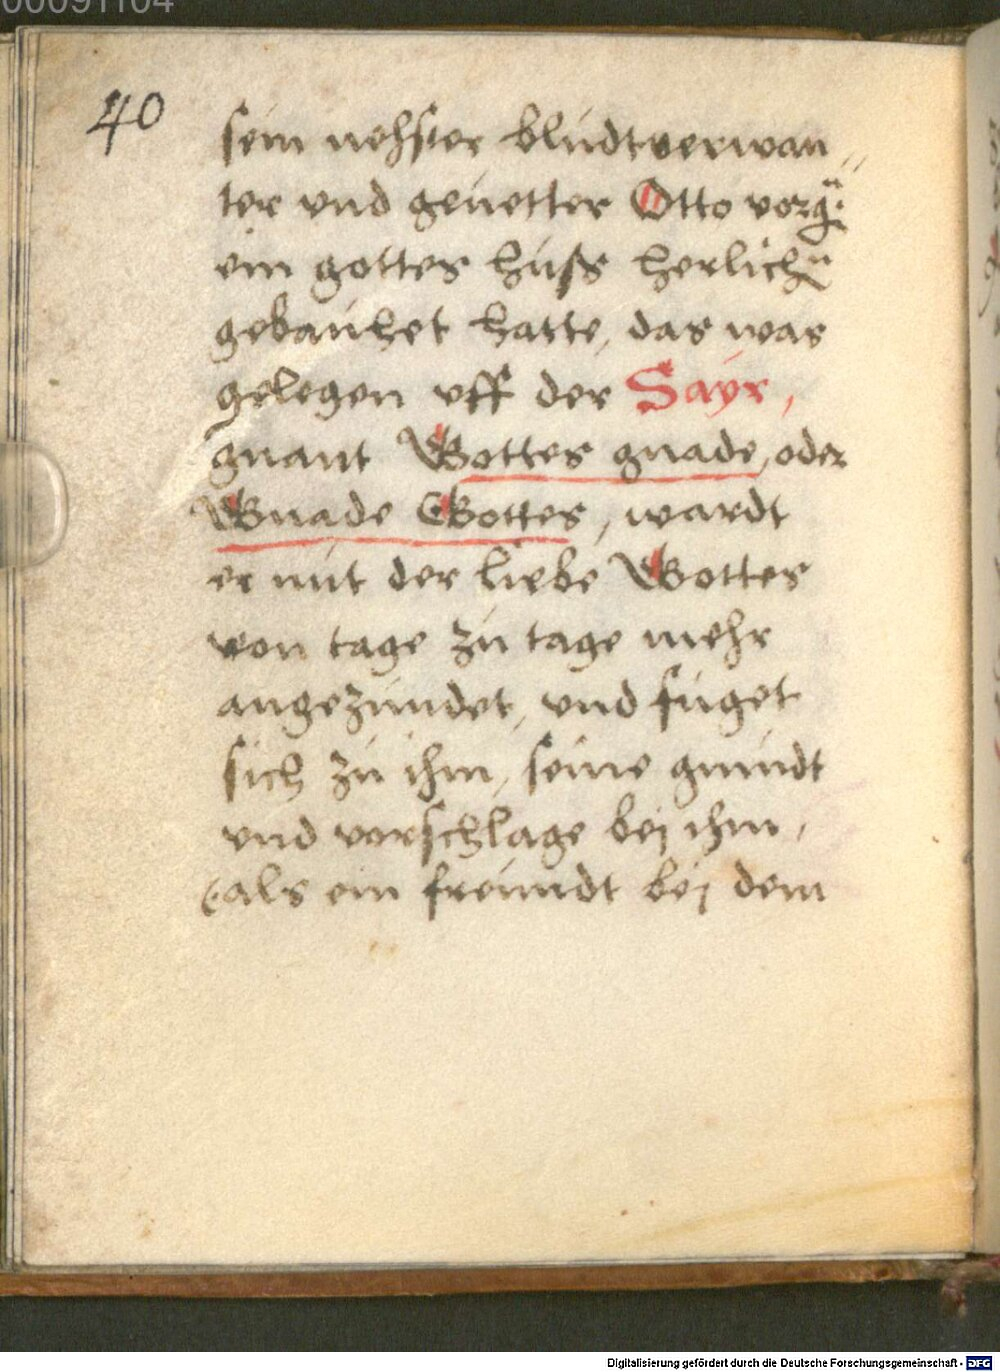 00091104
40
sein nehster bludtverwan„
ter vnd geuetter Otto vorg:
ein gottes huss herlich
gebauhet hatte, das was
gelegen vff der Sayr,
gnant Gottes gnade, oder
Gnade Gottes, wardt
er mit der liebe Gottes
von tage zu tage mehr
angezundet, vnd fuget
sich zu ihm, seine gmudt
vnd vorschlage bej ihm,
als ein freundt bej dem
Digitalisierung gefördert durch die Deutsche Forschungsgemeinschaft - DFG